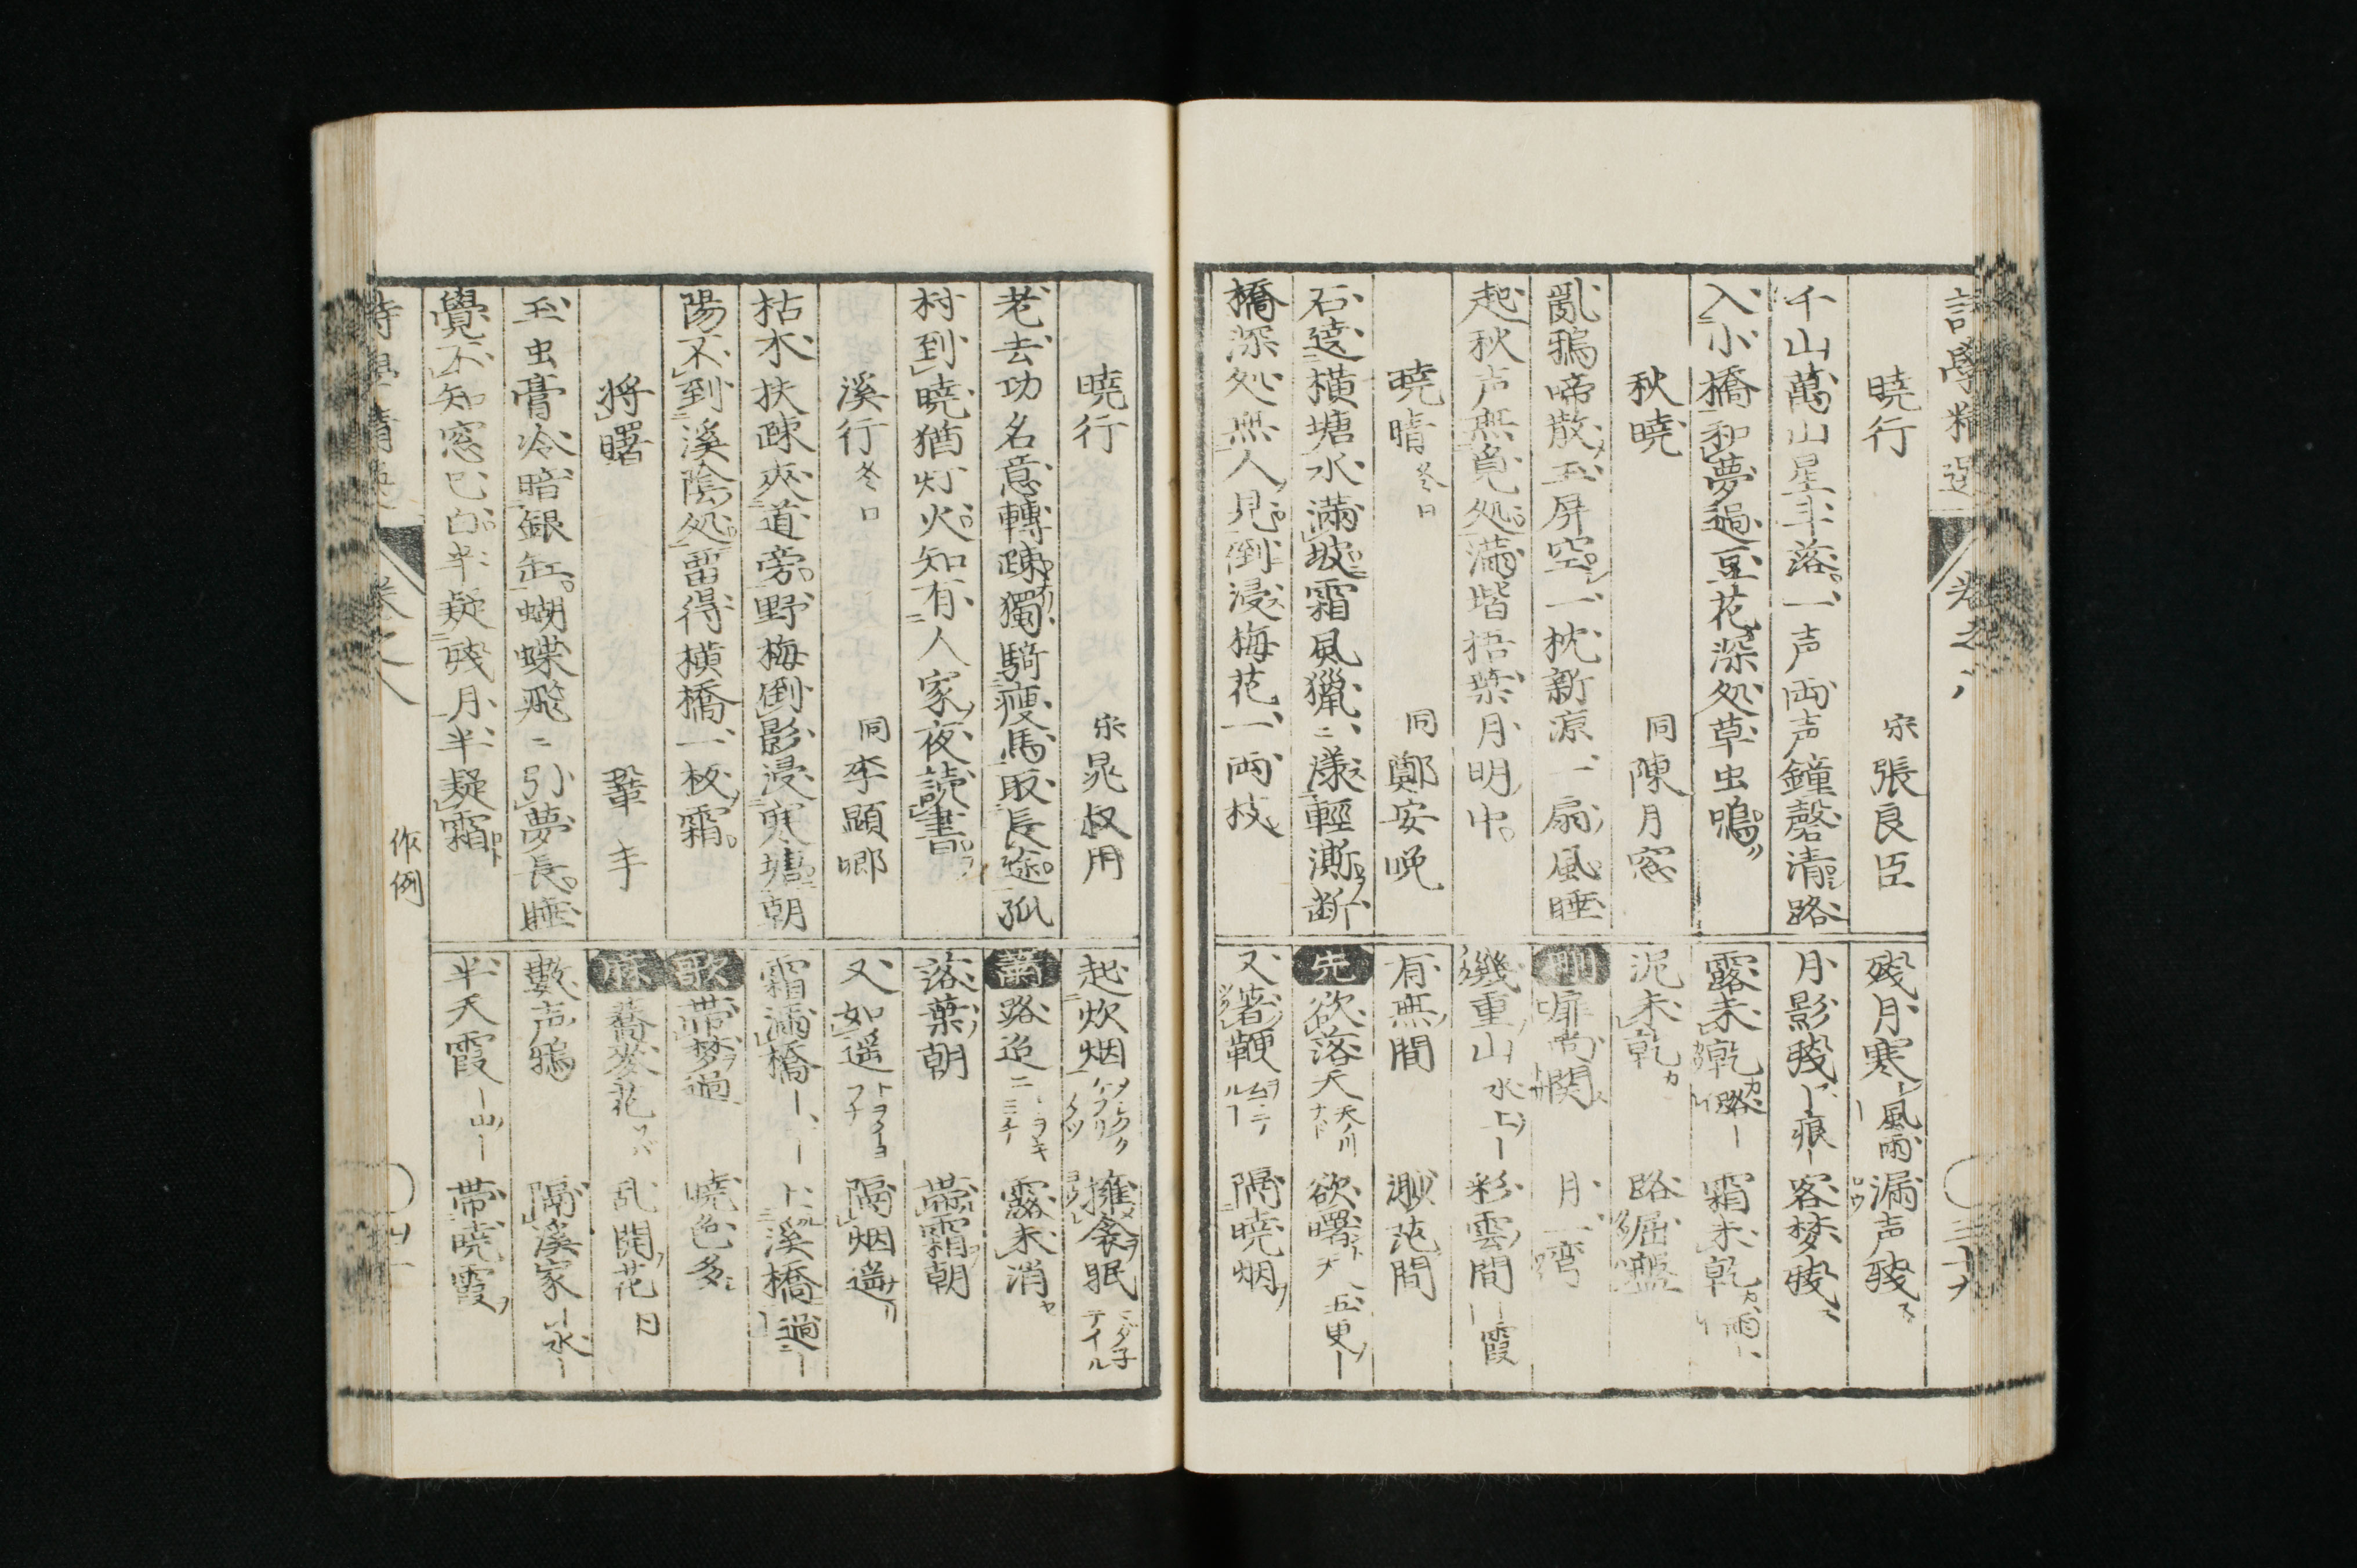 曉行　宋張良臣
千山萬山星斗落一声両声鐘磬清路
入小橋和夢過豆花深処草虫鳴
秋曉　同陳月窓
亂鴉啼散玉屏空一枕新凉一扇風睡
起秋声無覓処滿堦梧葉月明中
曉晴冬日　同鄭安晩
石逵横塘水滿坡霜風獵〻漾輕澌断
橋深処無人見倒浸梅花一両枝
残月寒 風雨 漏声残
月影残 痕 客梦残
露未乾 路 霜未乾 雨
泥未乾 路屈盤
扉尚関 月一湾
幾重山 水上 彩雲間 霞
有無間 渺茫間
先 欲落天 天川 欲曙天 五更
又著鞭 隔曉烟
卷之八
三十九
曉行　宋晁叔用
老去功名意轉疎獨騎瘦馬取長途孤
村到曉猶灯火知有人家夜読書
溪行冬日　同李顕卿
枯木扶疎夾道旁野梅倒影浸寒塘朝
陽不到溪陰処畱得横橋一板霜
將曙　鞏丰
玉虫膏冷暗銀缸蝴蝶飛〻引夢長睡
覺不知窓已白半疑残月半疑霜
起炊烟 擁衾眠
蕭 路迢〻 露未消
落葉朝 帶霜朝
又如遥 隔烟遥
霜滿橋 溪橋 過
歌 帶梦過 曉色多
麻 蕎麥花 乱開花
數声鴉 隔溪家 水
半天霞 山 帶曉霞
作例